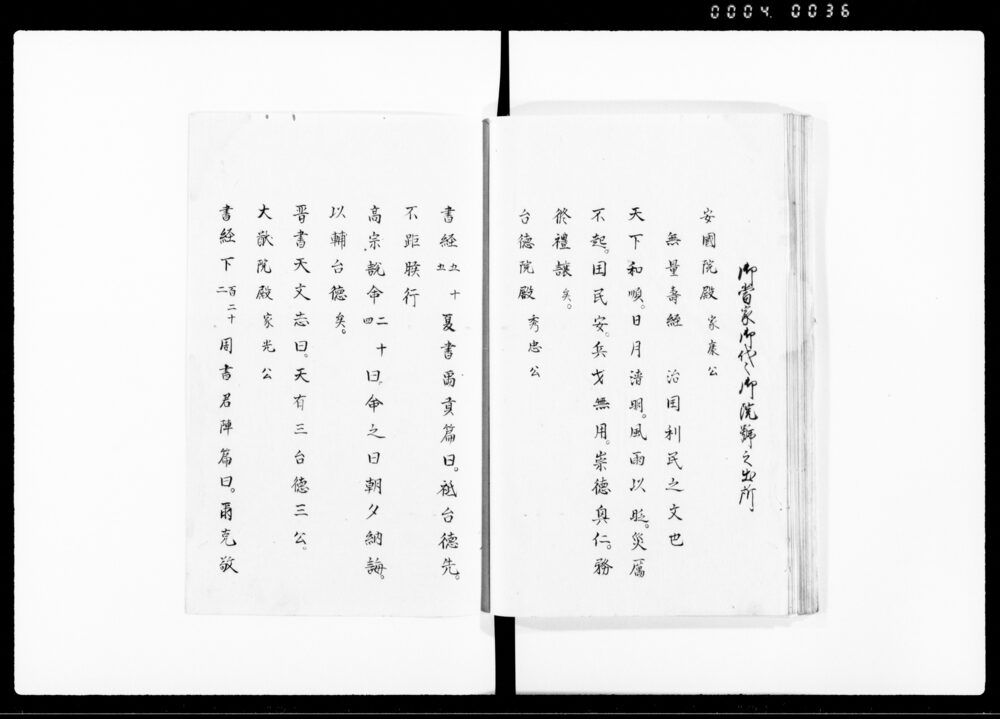 0004 0036
御當家御代々御院號之出所
安國院殿 家康公
無量壽經 治国利民之文也
天下和順。日月清明。風雨以時。災厲
不起。国民安。兵戈無用。崇德興仁。務
修禮讓矣。
台德院殿 秀忠公
書経 九十五 夏書禹貢篇曰。祗台德先。
不距朕行
高宗說命 二十四 曰。命之曰朝夕納誨。
以輔台德矣。
晋書天文志曰。天有三台德三公。
大猷院殿 家光公
書経下 百二十二 周書君陣篇曰。爾克敬